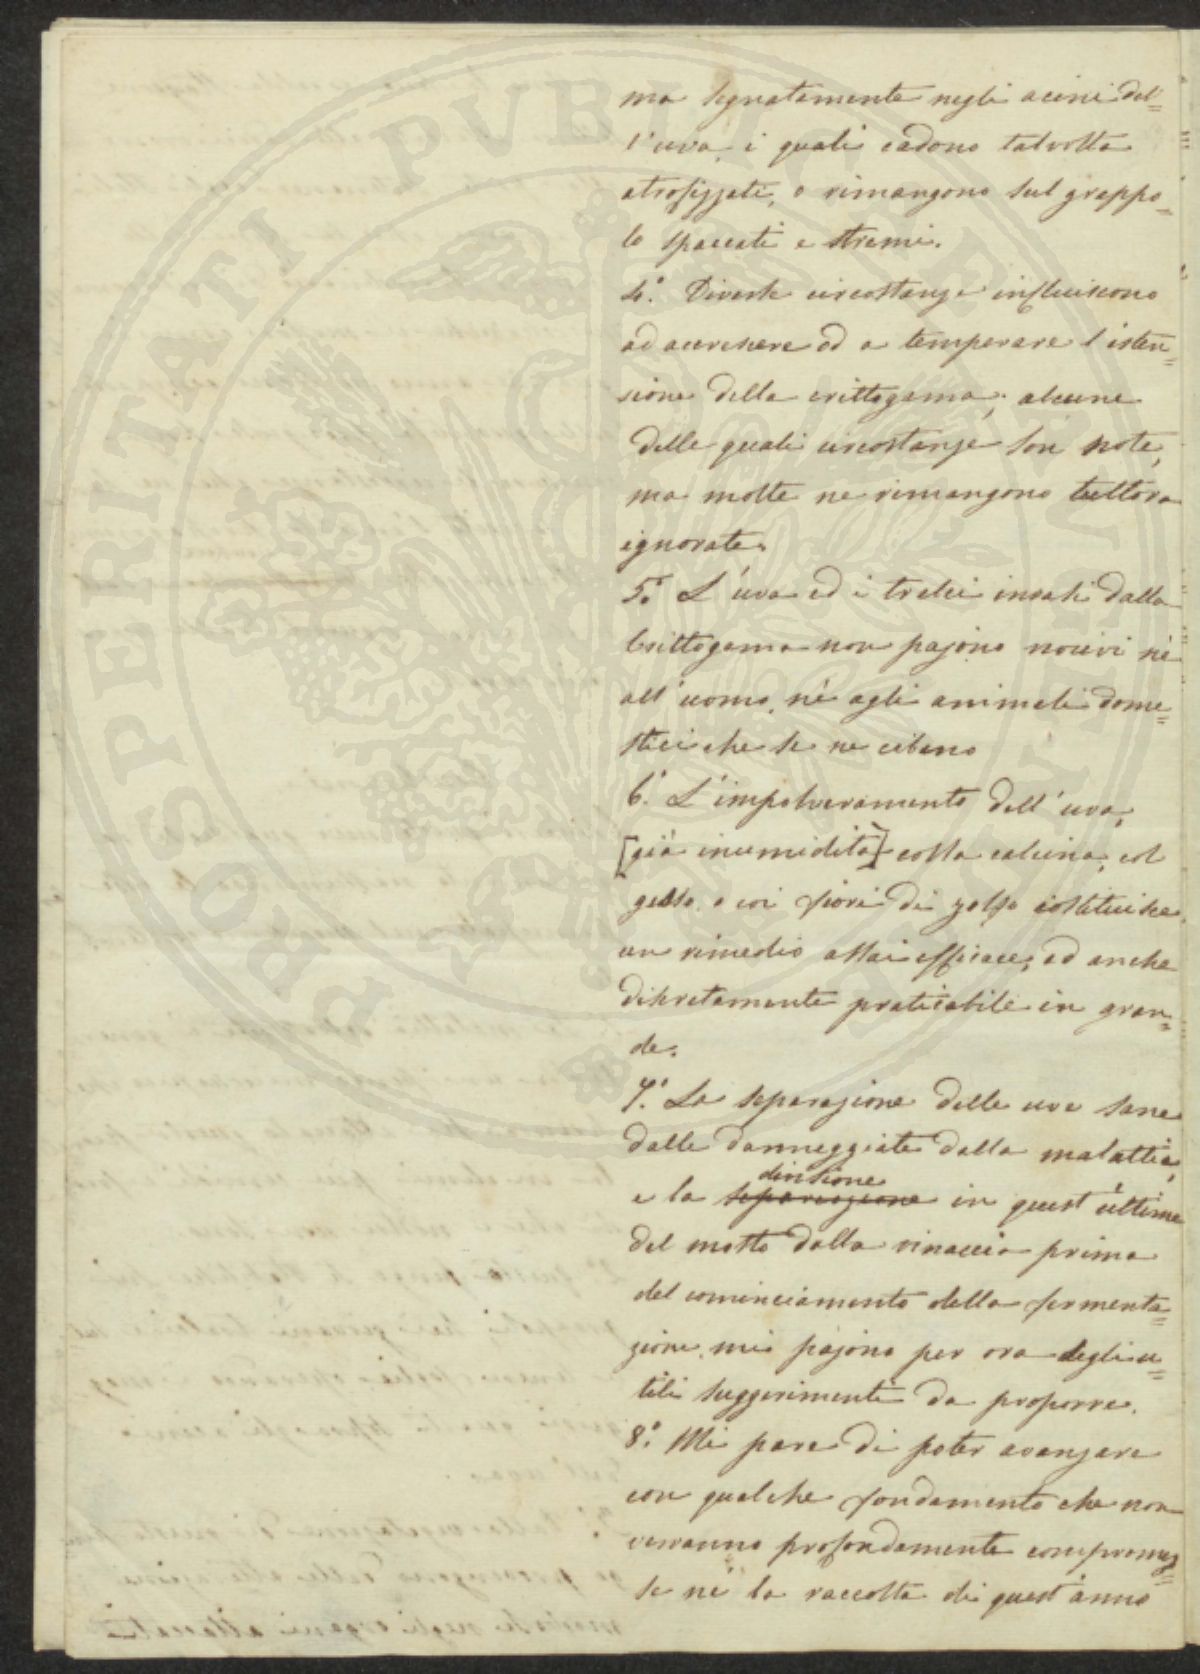 ma segnatamente negli acini del=
l'uva, i quali cadono talvolta
atrofizzati, o rimangono sul grappo=
lo spaccati e stremi.
4.° Diverse circostanze influiscono
ad accrescere od a temperare l'esten=
sione della crittogama; alcune
delle quali circostanze son note,
ma molte ne rimangono tuttora
ignorate.
5.° L'uva ed i tralci invasi dalla
Crittogama non pajono nocivi nè
all'uomo, nè agli animali dome=
stici che se ne cibano
6.° L'impolveramento dell'uva,
[già inumidita] colla calcina, col
gesso, o coi fiori di zolfo costituisce
un rimedio assai efficace, ed anche
discretamente praticabile in gran=
de.
7.° La separazione delle uve sane
dalle danneggiate dalla malattia,
divisione
e la separazione in quest'ultime
del mosto dalla vinaccia prima
del cominciamento della fermenta=
zione, mi pajono per ora degli u=
tili suggerimenti da proporre.
8.° Mi pare di poter avanzare
con qualche fondamento che non
verranno profondamente compromes=
se nè la raccolta di quest'anno
PROSPERITATI PUBLICAE AUGENDAE